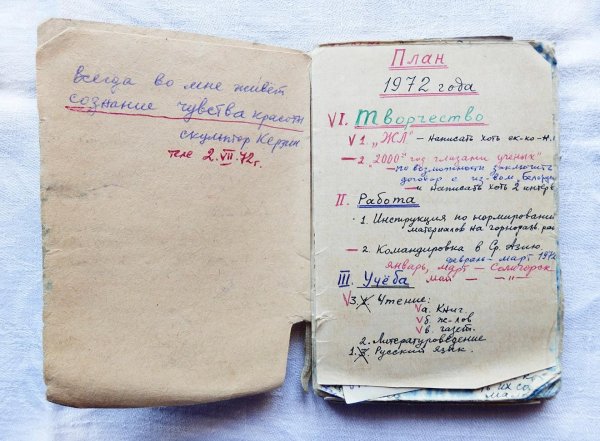 всегда во мне живёт
сознание чувства красоты
скульптор
теле 2.VII.72г.
План
1972 года
V I. Творчество
V 1. „ЖЛ" – написать хоть
— 2. „2000й год глазами ученых"
— по возможности заключить
договор с из-вом
— и написать хоть 2 интерв
II. Работа
· 1. Инструкция по нормированию
материалов на
— 2. Командировка в Ср. Азию.
февраль – март 1972
январь, март – Солигорск
май — — „ —
III. Учёба
V 3. Чтение:
V а. Книг
V б. ж-лов
V в. газет.
2. Литературоведение
1. Русский язык.
их со
ма